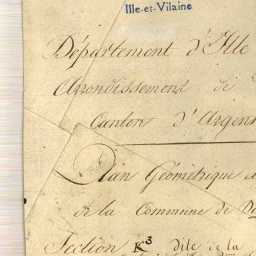 Ille-et-Vilaine
Département d'Ille
Arrondissement de
Canton d'Argen
Plan Géométrique
de la Commune de
Section K³ dite de la